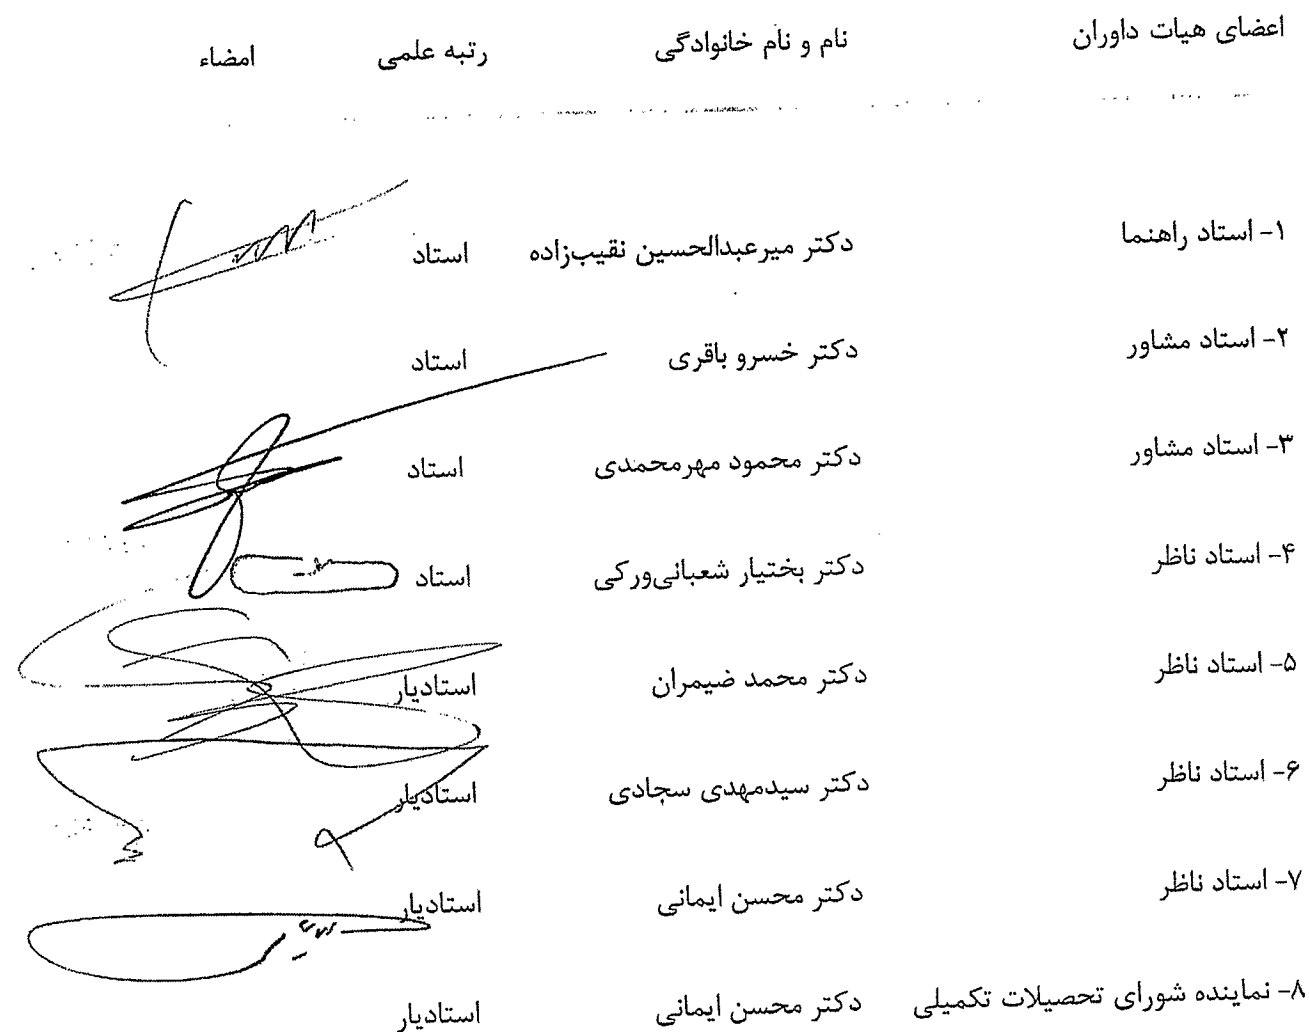 اعضای هیات داوران نام و نام خانوادگی رتبه علمی امضاء
۱- استاد راهنما دکتر میرعبدالحسین نقیب‌زاده استاد
۲- استاد مشاور دکتر خسرو باقری استاد
۳- استاد مشاور دکتر محمود مهرمحمدی استاد
۴- استاد ناظر دکتر بختیار شعبانی‌ورکی استاد
۵- استاد ناظر دکتر محمد ضیمران استادیار
۶- استاد ناظر دکتر سیدمهدی سجادی استادیار
۷- استاد ناظر دکتر محسن ایمانی استادیار
۸- نماینده شورای تحصیلات تکمیلی دکتر محسن ایمانی استادیار